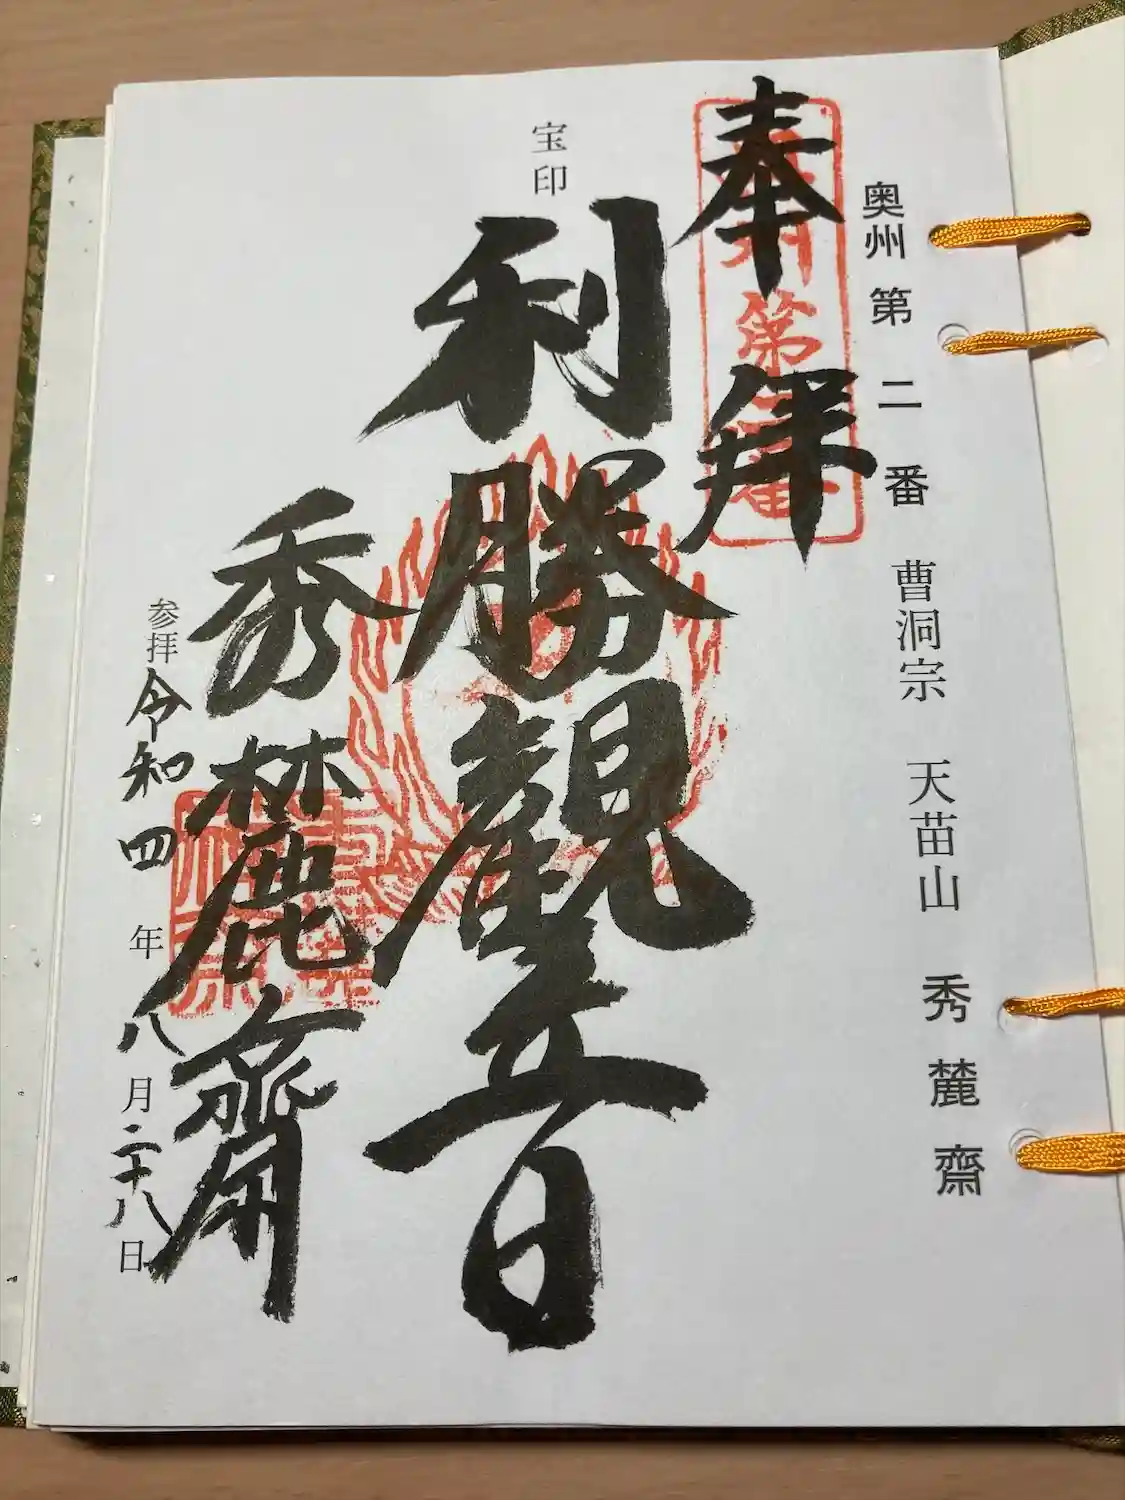 奥州第二番 曹洞宗 天苗山 秀麓齋
奉拝
第
宝印
利勝観音
秀麓齋
参拝令和四年八月二十八日